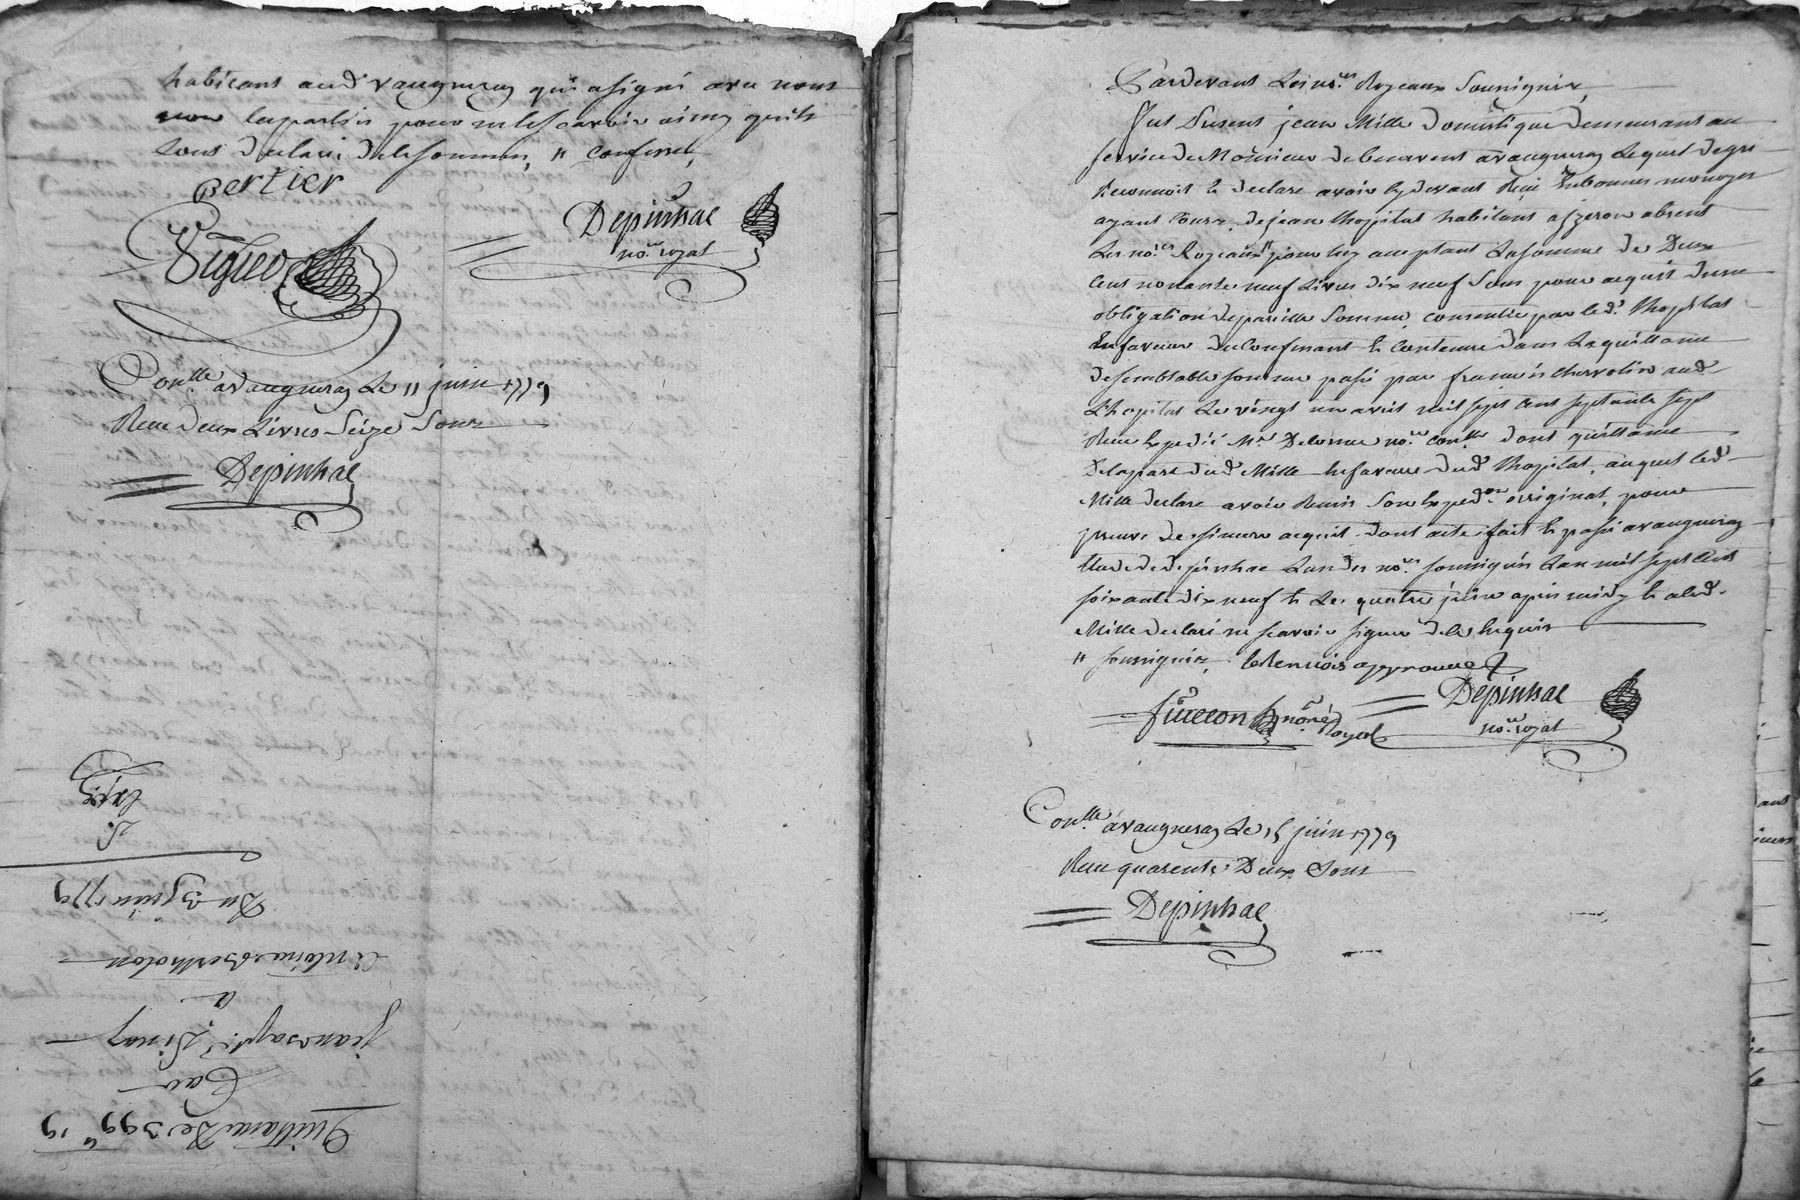 habitant aud vaugneray qui a signé avec nous
non les parties pour ne le scavoir ainsy quils
ont declaré de le sommer, // conferré,
Bertier
Viglier
Depinhac
no.re royal
Con.lle a vaugneray Le 11 juin 1779
Reçu deux Livres Seize Sous
Depinhac
Exp.é
Du 3 juin 1779
Antoine Bertholon
a
jean bap.te Dinay
Par
Quittance De 399 # 19
Pardevant Les no.res Royeaux Soussignéz,
fut present jean Mille Domestique demeurant au
service de Monsieur de benevent a vaugneray Lequel de gré
Reconnoit et declare avoir cy devant Reçu en bonne monoyes
ayant Cours, de jean thopital habitant a jzeron absent
Les no.res Royeaux // pour luy acceptant La somme de Deux
Cent nonante neuf Livres dix neuf Sous pour acquit d'une
obligation de pareille Somme, consentie par led. thopital
En faveur du Confessant et Contenue dans La quittance
de semblable somme passé par francois Chervolin aud
L'hopital Le vingt un avril mil sept cent septante sept
Reçu Expedié M.re Delorme no.re con.lle dont quittance
De la part dud Mille en faveur dud thopital, auquel led
Mille declare avoir Remis Son Exped.on original, pour
preuve de sincere acquit. dont acte fait et passé a vaugneray
Etude de depinhac L'un des no.res soussignés L'an mil sept Cent
soixante dix neuf et Le quatre juin apres midy et a led.
Mille declaré ne scavoir signer de ce Enquis
// soussignéz, le Renvois approuvé
fiuccon no.re Royal
Depinhac
no.re royal
Con.lle a vaugneray Le 15 juin 1779
Reçu quarente Deux Sous
Depinhac